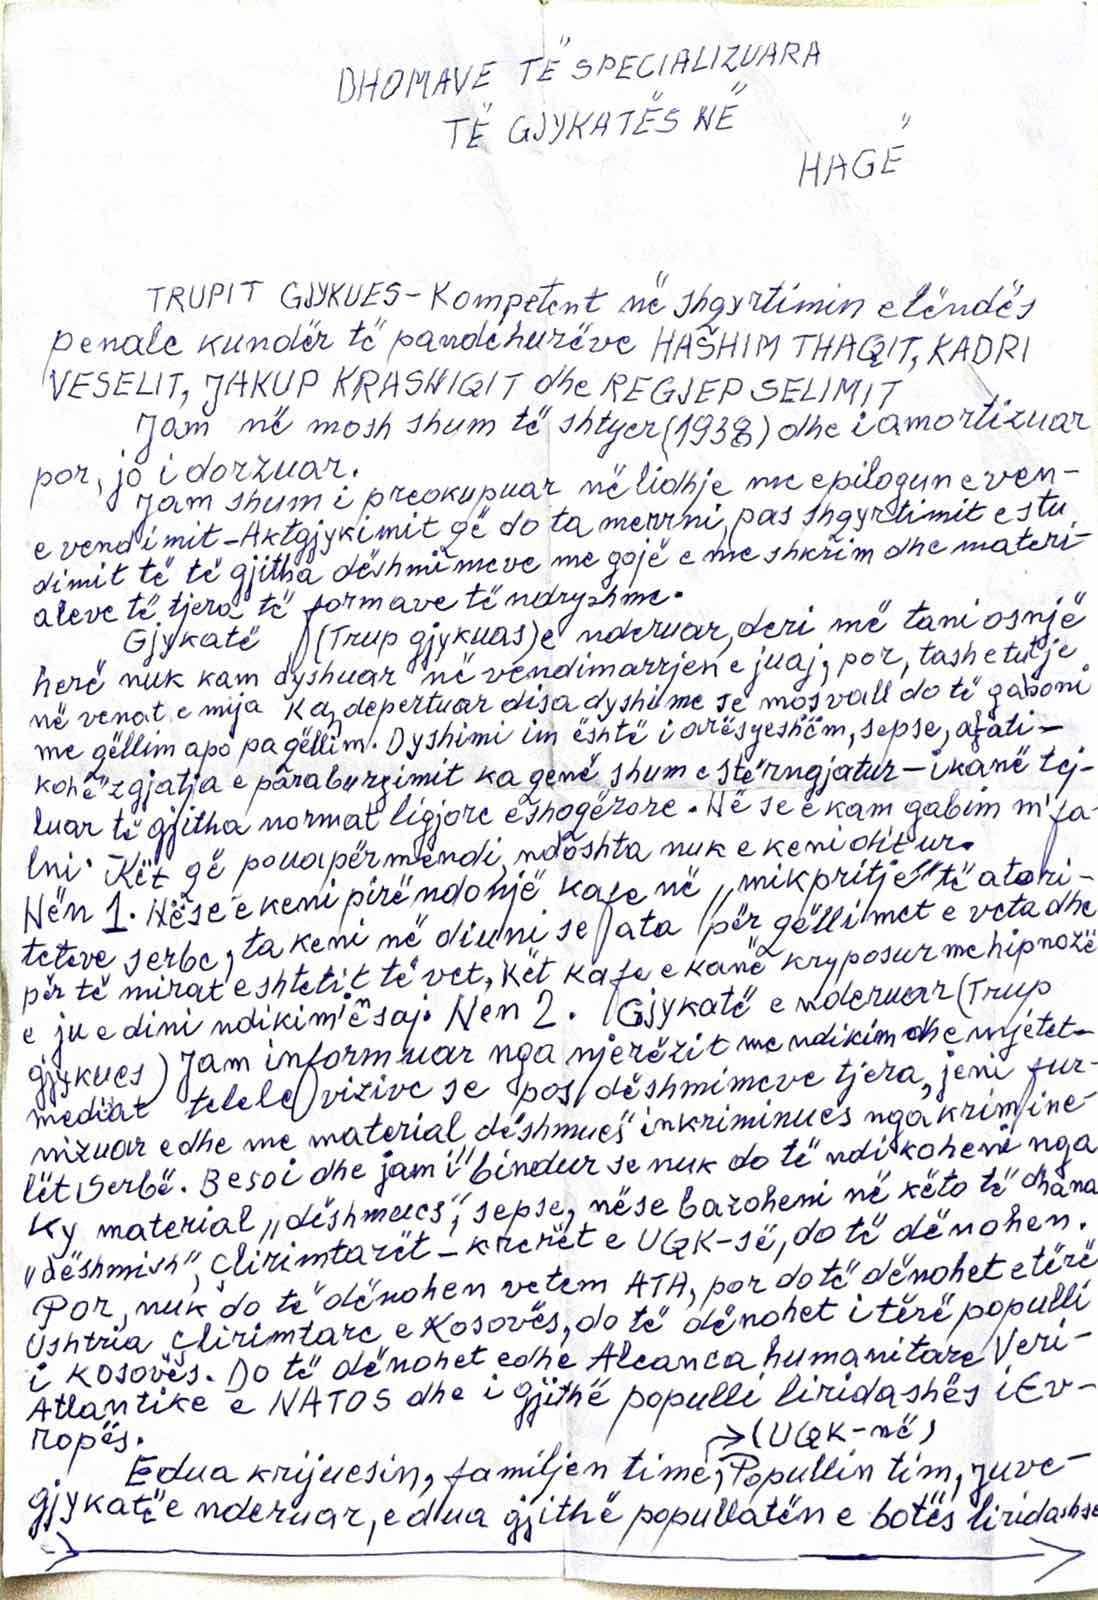 DHOMAVE TË SPECIALIZUARA
TË GJYKATËS NË
HAGË
TRUPIT GJYKUES - Kompetent në shqyrtimin e lëndës
penale kundër të pandehurëve HAŠHIM THAQIT, KADRI
VESELIT, JAKUP KRASNIQIT dhe REGJEP SELIMIT
Jam në mosh shum të shtyer (1938) dhe i amortizuar
por, jo i dorzuar.
Jam shum i preokupuar në lidhje me epilogun e ven-
e vendimit - Aktgjykimit që do ta merrni, pas shqyrtimit e stu
dimit të të gjitha dëshmimeve me gojë e me shkrim dhe materi-
aleve të tjera të formave të ndryshme.
Gjykatë (Trup gjykuas) e nderuar, deri më tani osnjë
herë nuk kam dyshuar në vendimarrjen e juaj, por, tash e tutje
në venat e mija ka depertuar disa dyshime se mos vall do të gaboni
me qëllim apo pa qëllim. Dyshimi im është i arësyeshëm, sepse, afati-
kohë zgjatja e paraburgimit ka qenë shum e stërngjatur - i kanë tej-
luar të gjitha normat ligjore e shoqërore. Në se e kam gabim m'fa-
lni. Kët që po ua përmendi, ndoshta nuk e keni ditur.
Nën 1. Nëse e keni pirë ndonjë kafe në „mikpritje" të atori-
teteve serbe, ta keni në dijeni se ata për qëllimet e veta dhe
për të mirat e shtetit të vet, kët kafe e kanë kryposur me hipnozë
e ju e dini ndikimin e saj. Nen 2. Gjykatë e nderuar (Trup
gjykues) Jam informuar nga njerëzit me ndikim dhe mjetet-
mediat televizive se pos dëshmimeve tjera, jeni fur-
nizuar edhe me material dëshmues inkriminues nga krimine-
lët serbë. Besoi dhe jam i bindur se nuk do të ndikoheni nga
ky material „dëshmues", sepse, nëse bazoheni në këto të dhana
„dëshmish", Çlirimtarët - krerët e UÇK-së, do të dënohen.
Por, nuk do të dënohen vetem ATA, por do të dënohet e tërë
Ushtria Çlirimtare e Kosovës, do të dënohet i tërë populli
i Kosovës. Do të dënohet edhe Aleanca humanitare Veri-
Atlantike e NATOS dhe i gjithë populli liridashës i Ev-
ropës.
→ (UÇK-në)
E dua krijuesin, familjen time, Popullin tim, juve-
gjykatë e nderuar, e dua gjithë popullatën e botës liridashse